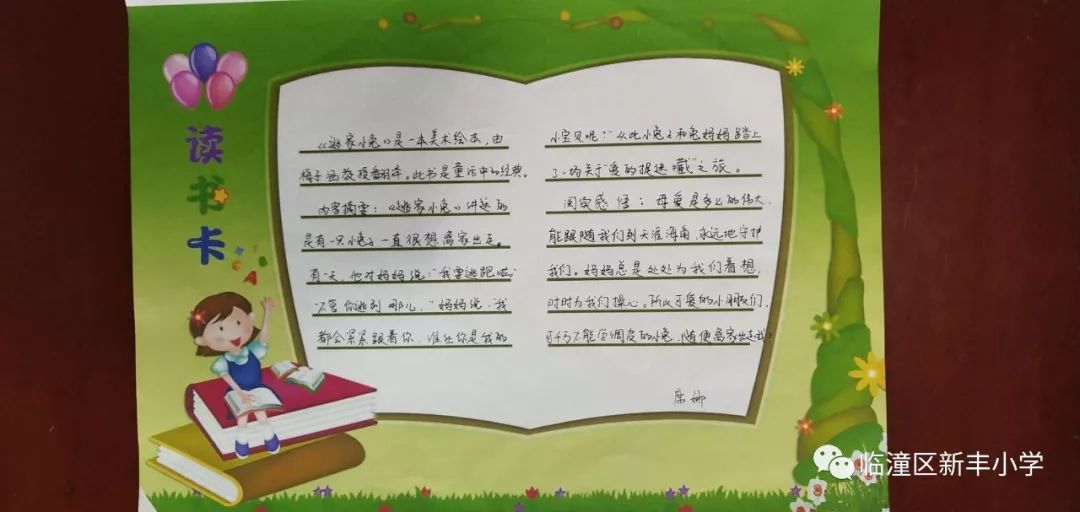 读书卡
《逃家小兔》是一本美术绘本，由
梅子涵教授翻译。此书是童话中的经典。
内容摘要：《逃家小兔》讲述的
是有一只小兔子一直很想离家出走。
有一天，他对妈妈说："我要逃跑啦"
"不管你逃到哪儿，"妈妈说"我
都会紧紧跟着你，谁让你是我的
小宝贝呢？"从此小兔子和兔妈妈踏上
了一场关于"爱的捉迷藏"之旅。
阅读感悟：母爱是多么的伟大，
能跟随我们到天涯海角，永远地守护
我们。妈妈总是处处为我们着想，
时时为我们操心。所以可爱的小朋友们，
可千万不能学调皮的小兔，随便离家出走哦！
娜
临潼区新丰小学